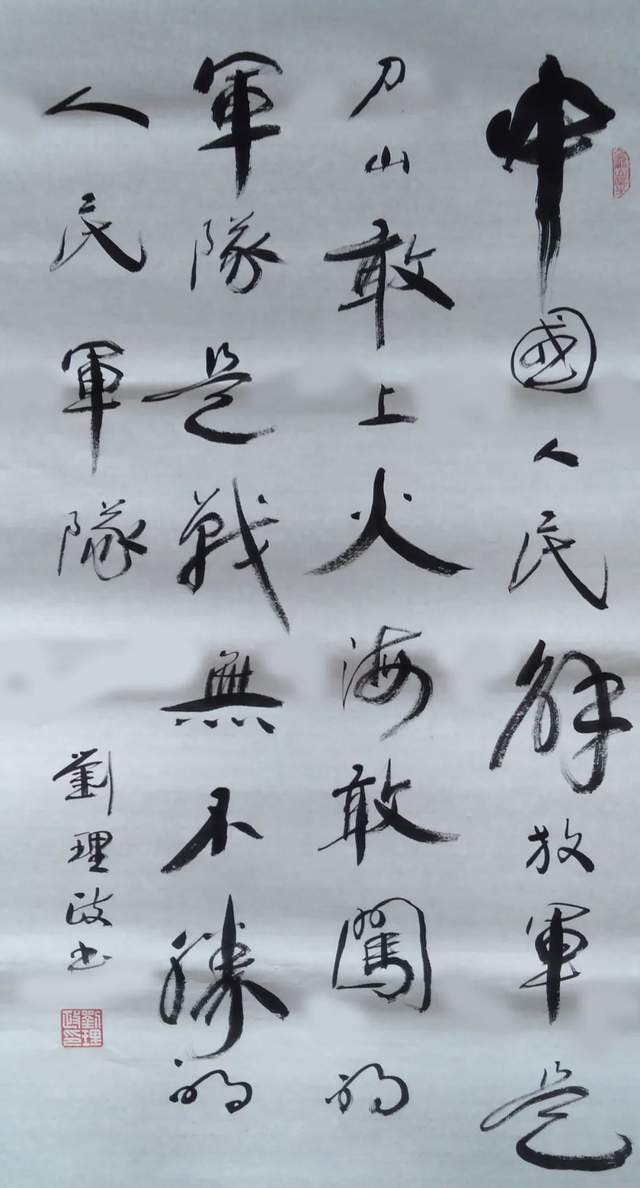 中國人民解放軍是
刀山敢上火海敢闖的
軍隊是戰無不勝的
人民軍隊
劉理政书
劉理政印